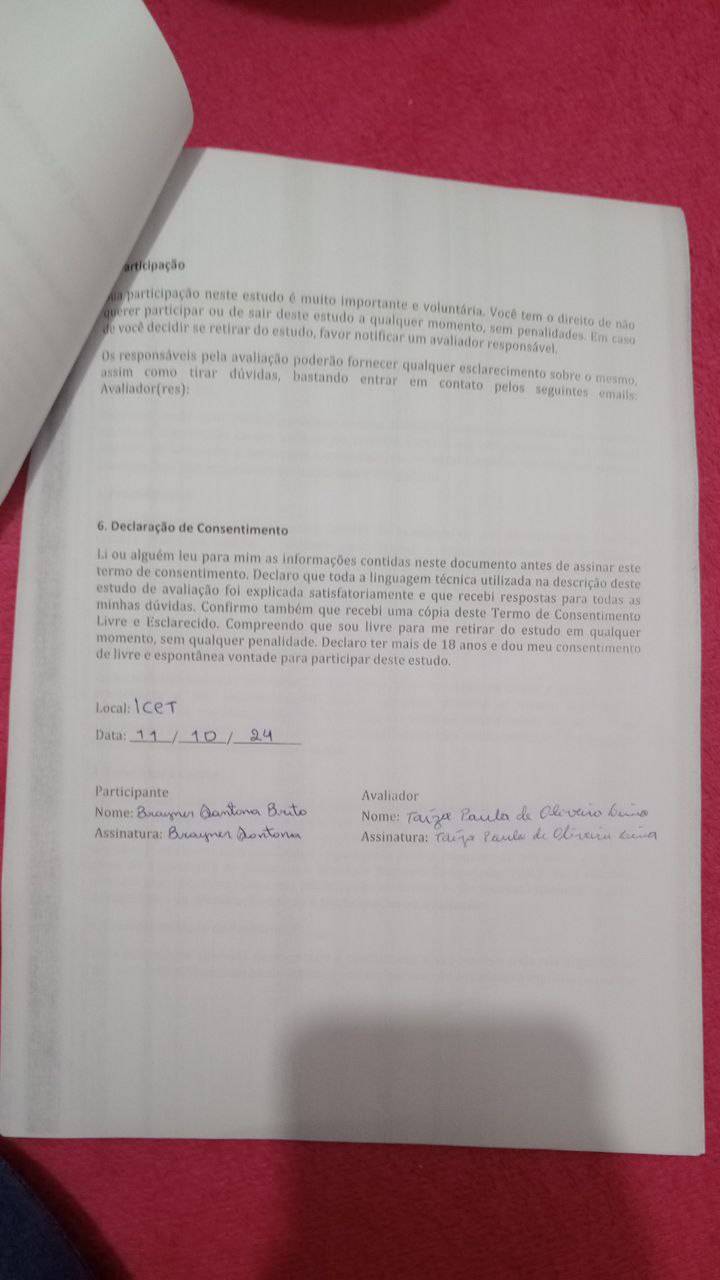 articipação
sua participação neste estudo é muito importante e voluntária. Você tem o direito de não
querer participar ou de sair deste estudo a qualquer momento, sem penalidades. Em caso
de você decidir se retirar do estudo, favor notificar um avaliador responsável.
Os responsáveis pela avaliação poderão fornecer qualquer esclarecimento sobre o mesmo,
assim como tirar dúvidas, bastando entrar em contato pelos seguintes emails:
Avaliador(res):
6. Declaração de Consentimento
Li ou alguém leu para mim as informações contidas neste documento antes de assinar este
termo de consentimento. Declaro que toda a linguagem técnica utilizada na descrição deste
estudo de avaliação foi explicada satisfatoriamente e que recebi respostas para todas as
minhas dúvidas. Confirmo também que recebi uma cópia deste Termo de Consentimento
Livre e Esclarecido. Compreendo que sou livre para me retirar do estudo em qualquer
momento, sem qualquer penalidade. Declaro ter mais de 18 anos e dou meu consentimento
de livre e espontânea vontade para participar deste estudo.
Local: ICET
Data: 11 / 10 / 24
Participante
Nome: Brayner Dantona Brito
Assinatura: Brayner Dantona
Avaliador
Nome: Taíza Paula de Oliveira Lima
Assinatura: Taíza Paula de Oliveira Lima